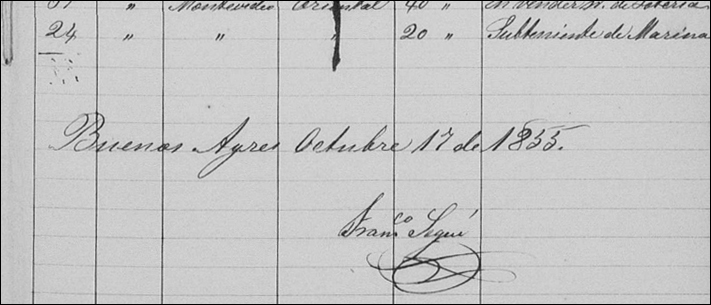 " Montevideo Oriental 40 "
24 " " " 20 " Subteniente de Marina
Buenos Ayres Octubre 17 de 1855.
Franco Seguí